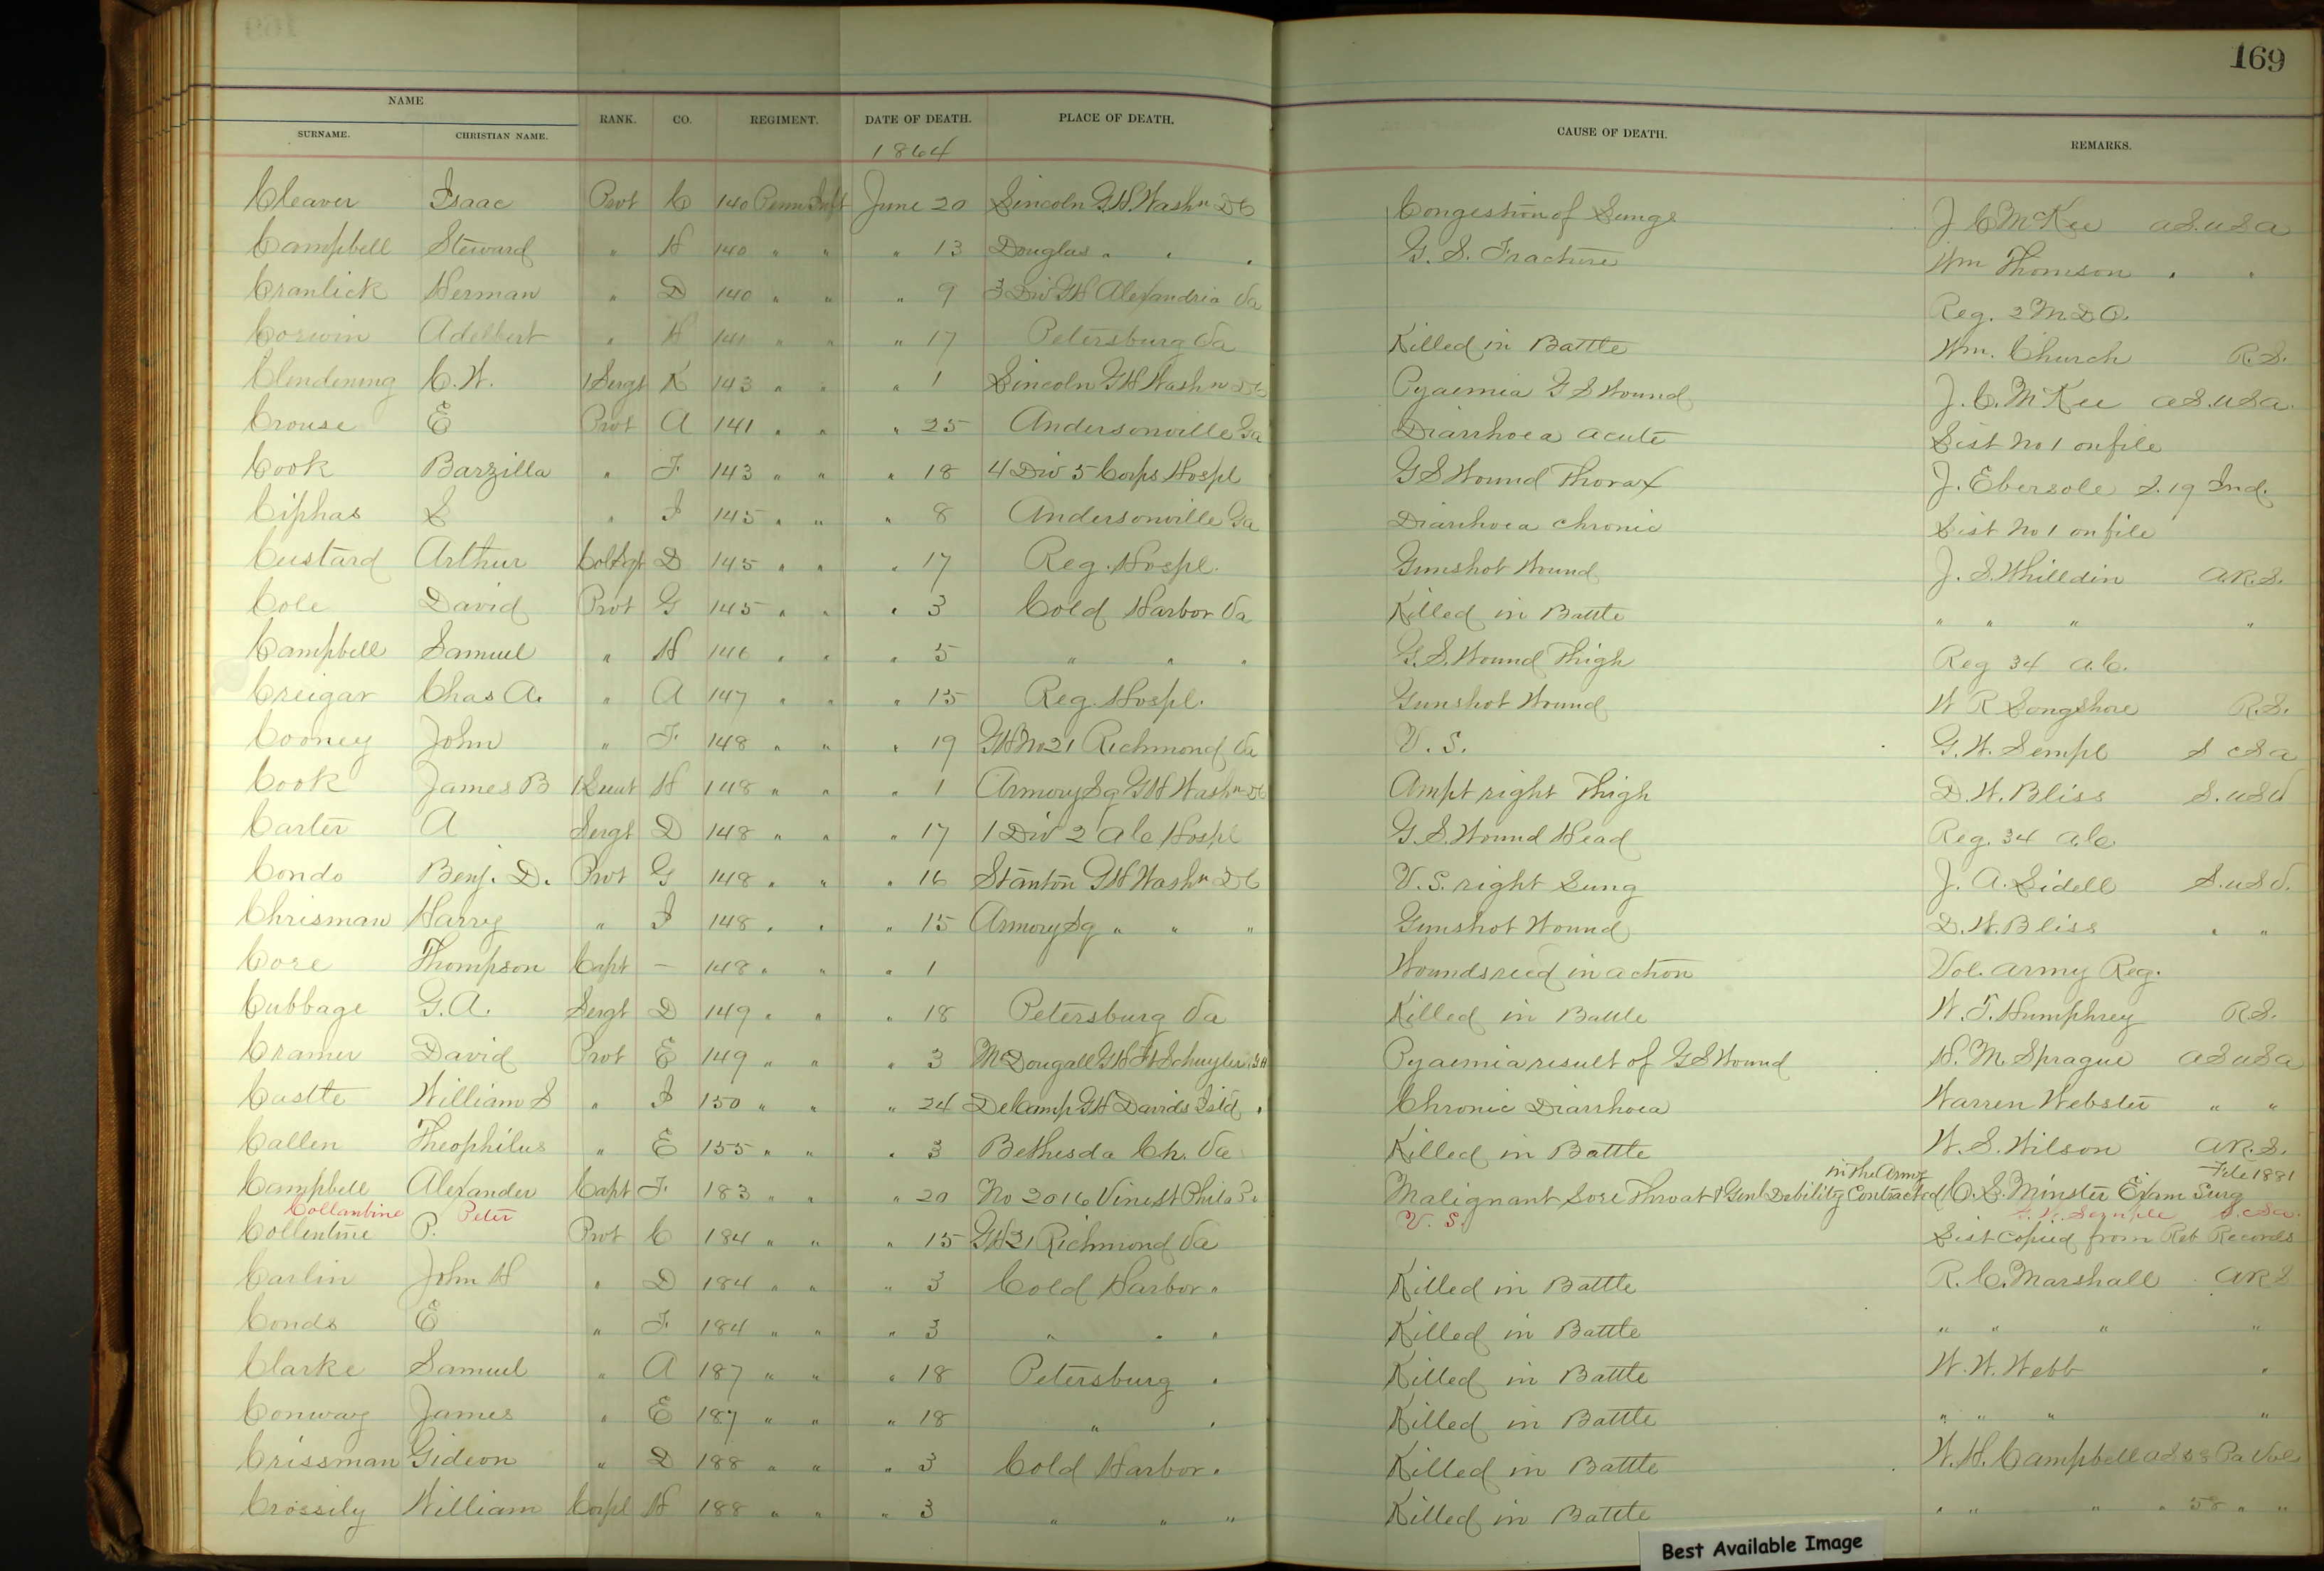 169
NAME
SURNAME. CHRISTIAN NAME. RANK. CO. REGIMENT. DATE OF DEATH. PLACE OF DEATH. CAUSE OF DEATH. REMARKS.
1864
Cleaver Isaac Prvt C 140 Penn Inft June 20 Lincoln G.H. Washn D C Congestion of Lungs J C McKee A S. U S A
Campbell Steward " H 140 " " " 13 Douglas " " " G. S. Fracture Wm Thomson " "
Cranlick Herman " D 140 " " " 9 3 Div G H Alexandria Va Reg. 2 M. D. O.
Corwin Adelbert " H 141 " " " 17 Petersburg Va Killed in Battle Wm. Church R. S.
Clendening C. W. 1 Sergt K 143 " " " 1 Lincoln G H Washn D C Pyaemia G S Wound J. C. McKee A S. U S A.
Crouse E Prvt A 141 " " " 25 Andersonville Ga Diarrhoea acute List No 1 on file
Cook Barzilla " F 143 " " " 18 4 Div 5 Corps Hospl G S Wound Thorax J. Ebersole S. 19 Ind.
Ciphas S " I 145 " " " 8 Andersonville Ga Diarrhoea chronic List No 1 on file
Custard Arthur Col Sgt D 145 " " " 17 Reg. Hospl. Gunshot Wound J. S. Whilldin A R. S.
Cole David Prvt G 145 " " " 3 Cold Harbor Va Killed in Battle " " " "
Campbell Samuel " H 146 " " " 5 " " " G. S. Wound Thigh Reg 34 A. C.
Creigar Chas A. " A 147 " " " 15 Reg. Hospl. Gunshot Wound W R Longshore R. S.
Cooney John " F 148 " " " 19 G H No 21 Richmond Va V. S. G. W. Sempl S C S A
Cook James B 1 Lieut H 148 " " " 1 Armory Sq G H Washn D C Ampt right Thigh D. W. Bliss S. U S V
Carter A Sergt D 148 " " " 17 1 Div 2 A C Hospl G. S. Wound Head Reg. 34 A. C.
Condo Benj. D. Prvt G 148 " " " 16 Stanton G H Washn D C V. S. right Lung J. A. Lidell S. U S V.
Chrisman Harry " I 148 " " " 15 Armory Sq " " " Gunshot Wound D. W. Bliss " "
Core Thompson Capt — 148 " " " 1 Wounds recd in action Vol. Army Reg.
Cubbage G. A. Sergt D 149 " " " 18 Petersburg Va Killed in Battle W. T. Humphrey R S.
Cramer David Prvt E 149 " " " 3 McDougall G H Ft Schuyler N Y H Pyaemia result of G S Wound H. M. Sprague A S U S A
Castte William S " I 150 " " " 24 DeCamp G H Davids Isld " Chronic Diarrhoea Warren Webster " "
Callen Theophilus " E 155 " " " 3 Bethesda Ch. Va Killed in Battle W. S. Wilson A R. S.
in the Army File 1881
Campbell Alexander Capt F. 183 " " " 20 No 2016 Vine st Phila Pa Malignant Sore Throat & Genl Debility Contracted C. S. Minster Exam Surg
Collantine Peter V. S. G. W. Semple S. C S A.
Collentine P. Prvt C 184 " " " 15 G H 21 Richmond Va List copied from Reb Records
Carlin John H " D 184 " " " 3 Cold Harbor " Killed in Battle R. C. Marshall A R S
Conds E " F 184 " " " 3 " " " Killed in Battle " " " "
Clarke Samuel " A 187 " " " 18 Petersburg " Killed in Battle W. W. Webb "
Conway James " E 187 " " " 18 " " Killed in Battle " " " "
Crissman Gideon " D 188 " " " 3 Cold Harbor " Killed in Battle W. H. Campbell A S 58 Pa Vols
Crossily William Corpl H 188 " " " 3 " " " Killed in Battle " " " " 58 " "
Best Available Image